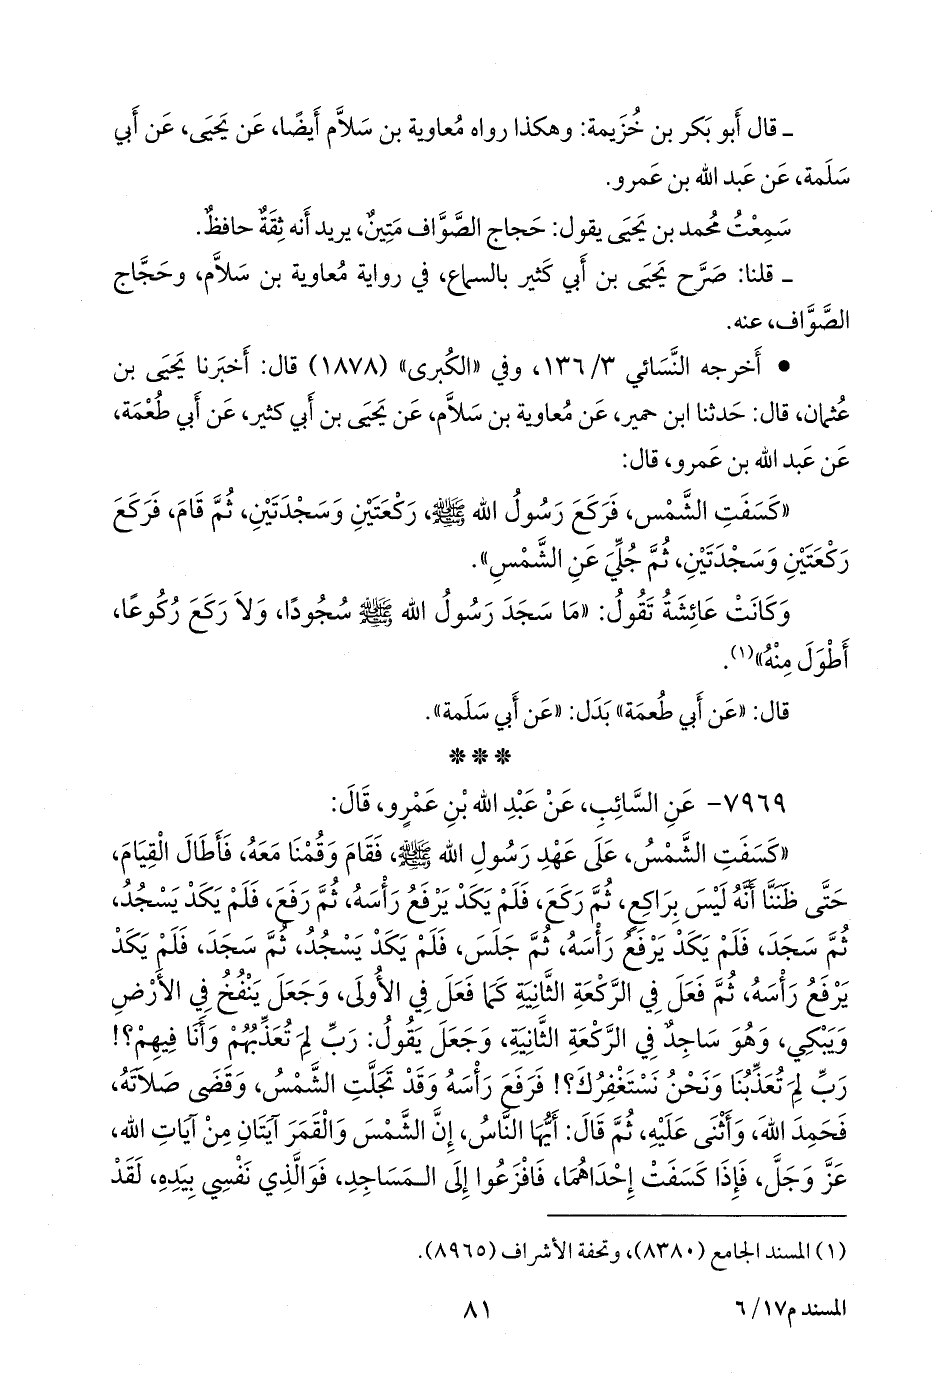 ـ قال أَبو بَكر بن خُزَيمة: وهكذا رواه مُعاوية بن سَلاَّم أَيضًا، عَن يَحيَى، عَن أَبي
سَلَمة، عَن عَبد الله بن عَمرو.
سَمِعْتُ مُحمد بن يَحيَى يقول: حَجاج الصَّوَّاف مَتِينٌ، يريد أَنه ثِقَةٌ حافظٌ.
ـ قلنا: صَرَّح يَحيَى بن أَبي كَثير بالسماع، في رواية مُعاوية بن سَلاَّم، وحَجَّاج
الصَّوَّاف، عنه.
• أَخرجه النَّسَائي ٣/ ١٣٦، وفي «الكُبرى» (١٨٧٨) قال: أَخبَرنا يَحيَى بن
عُثمان، قال: حَدثنا ابن حِمير، عَن مُعاوية بن سَلاَّم، عَن يَحيَى بن أَبي كثير، عَن أَبي طُعْمَة،
عَن عَبد الله بن عَمرو، قال:
«كَسَفَتِ الشَّمْس، فَرَكَعَ رَسُولُ الله ﷺ، رَكْعَتَيْنِ وَسَجْدَتَيْنِ، ثُمَّ قَامَ، فَرَكَعَ
رَكْعَتَيْنِ وَسَجْدَتَيْنِ، ثُمَّ جُلِّيَ عَنِ الشَّمْسِ».
وَكَانَتْ عَائِشَةُ تَقُولُ: «مَا سَجَدَ رَسُولُ الله ﷺ سُجُودًا، وَلاَ رَكَعَ رُكُوعًا،
أَطْوَلَ مِنْهُ»(١).
قال: «عَن أَبي طُعمَة» بَدَل: «عَن أَبي سَلَمة».
***
٧٩٦٩- عَنِ السَّائِبِ، عَنْ عَبْدِ الله بْنِ عَمْرٍو، قَالَ:
«كَسَفَتِ الشَّمْسُ، عَلَى عَهْدِ رَسُولِ الله ﷺ، فَقَامَ وَقُمْنَا مَعَهُ، فَأَطَالَ الْقِيَامَ،
حَتَّى ظَنَنَّا أَنَّهُ لَيْسَ بِرَاكِعٍ، ثُمَّ رَكَعَ، فَلَمْ يَكَدْ يَرْفَعُ رَأْسَهُ، ثُمَّ رَفَعَ، فَلَمْ يَكَدْ يَسْجُدُ،
ثُمَّ سَجَدَ، فَلَمْ يَكَدْ يَرْفَعُ رَأْسَهُ، ثُمَّ جَلَسَ، فَلَمْ يَكَدْ يَسْجُدُ، ثُمَّ سَجَدَ، فَلَمْ يَكَدْ
يَرْفَعُ رَأْسَهُ، ثُمَّ فَعَلَ فِي الرَّكْعَةِ الثَّانِيَةِ كَمَا فَعَلَ فِي الأُولَى، وَجَعَلَ يَنْفُخُ فِي الأَرْضِ
وَيَبْكِي، وَهُوَ سَاجِدٌ فِي الرَّكْعَةِ الثَّانِيَةِ، وَجَعَلَ يَقُولُ: رَبِّ لِمَ تُعَذِّبُهُمْ وَأَنَا فِيهِمْ؟!
رَبِّ لِمَ تُعَذِّبُنَا وَنَحْنُ نَسْتَغْفِرُكَ؟! فَرَفَعَ رَأْسَهُ وَقَدْ تَجَلَّتِ الشَّمْسُ، وَقَضَى صَلاَتَهُ،
فَحَمِدَ اللهَ، وَأَثْنَى عَلَيْهِ، ثُمَّ قَالَ: أَيُّهَا النَّاسُ، إِنَّ الشَّمْسَ وَالْقَمَرَ آيَتَانِ مِنْ آيَاتِ الله،
عَزَّ وَجَلَّ، فَإِذَا كَسَفَتْ إِحْدَاهُمَا، فَافْزَعُوا إِلَى الـمَسَاجِدِ، فَوَالَّذِي نَفْسِي بِيَدِهِ، لَقَدْ
(١) المسند الجامع (٨٣٨٠)، وتحفة الأشراف (٨٩٦٥).
المسند م١٧/ ٦
٨١